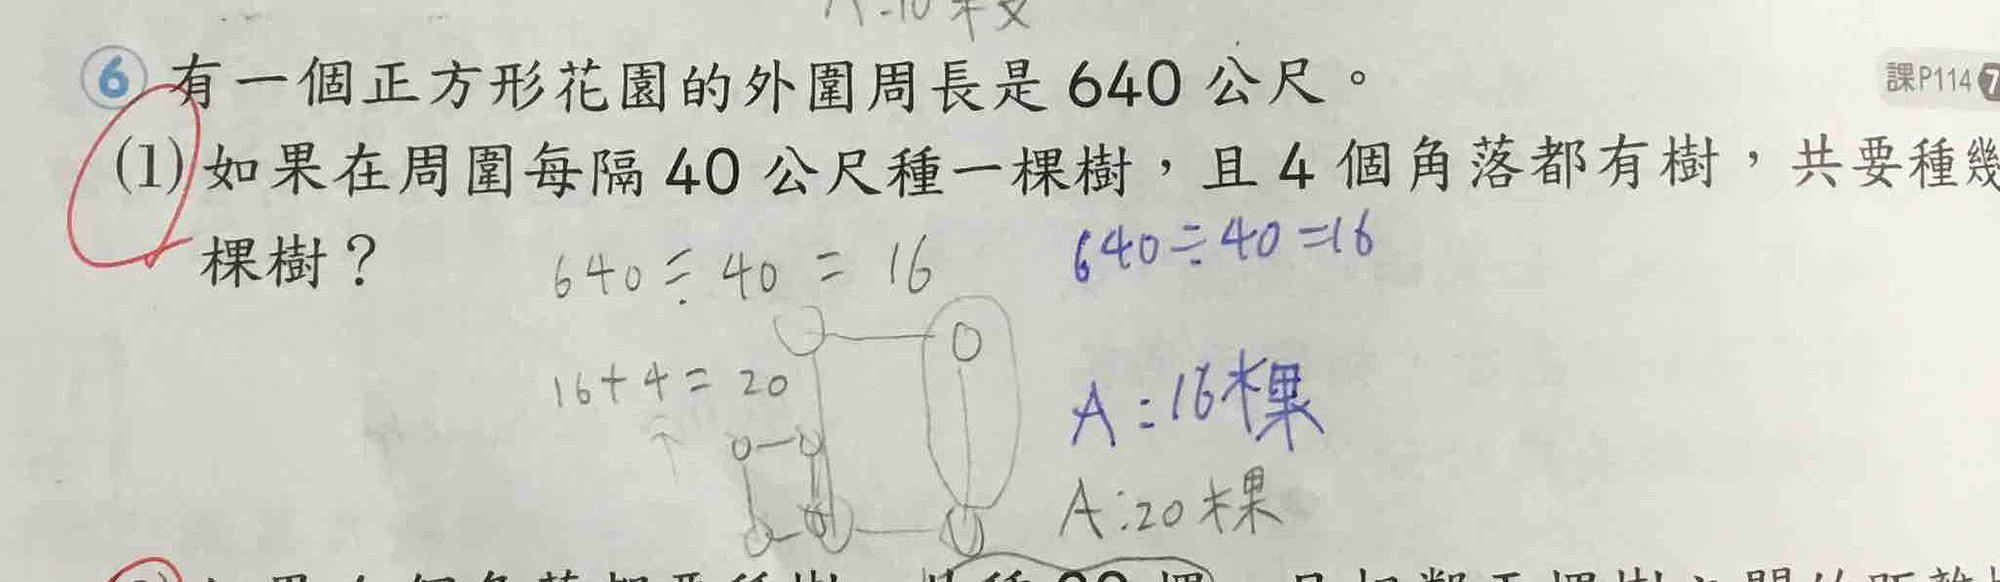 ⑥ 有一個正方形花園的外圍周長是 640 公尺。
課P114 7
(1) 如果在周圍每隔 40 公尺種一棵樹，且 4 個角落都有樹，共要種幾
棵樹？
640÷40=16
640÷40=16
16+4=20
A:16棵
A:20棵